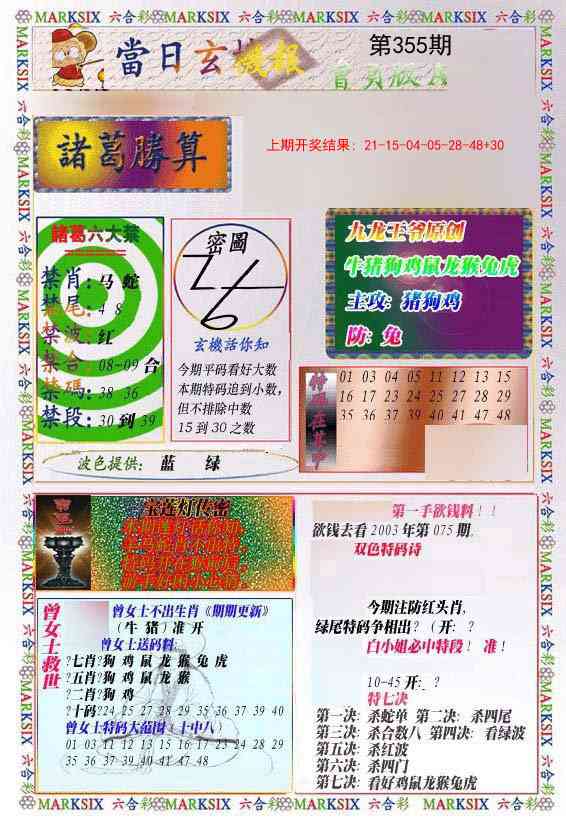 MARKSIX 六合彩 MARKSIX 六合彩 MARKSIX 六合彩 MARKSIX 六合彩 MARKSIX 六合彩 MARKSIX 六合彩 MARKSIX
當日玄機報
第355期
首頁版A
諸葛勝算
上期开奖结果: 21-15-04-05-28-48+30
諸葛六大禁
禁肖: 马 蛇
禁尾: 4 8
禁波: 红
禁合: 08-09 合
禁碼: 38 36
禁段: 30 到 39
密圖
玄機話你知
今期平码看好大数
本期特码追到小数,
但不排除中数
15 到 30 之数
九龙王爷原创
牛猪狗鸡鼠龙猴兔虎
主攻: 猪狗鸡
防: 兔
特码在其中
01 03 04 05 11 12 13 15
16 17 23 24 25 27 28 29
35 36 37 39 40 41 47 48
波色提供: 蓝 绿
宝莲灯传密
第一手欲钱料!!
欲钱去看 2003 年第 075 期.
双色特码诗
今期注防红头肖,
绿尾特码争相出? (开: ?
白小姐必中特段! 准!
10-45 开: ?
特七决
第一决: 杀蛇单 第二决: 杀四尾
第三决: 杀合数八 第四决: 看绿波
第五决: 杀红波
第六决: 杀四门
第七决: 看好鸡鼠龙猴兔虎
曾女士救世
曾女士不出生肖《期期更新》
(牛 猪) 准 开
曾女士送码料:
?七肖?狗 鸡 鼠 龙 猴 兔 虎
?五肖?狗 鸡 鼠 龙 猴
?二肖?狗 鸡
?十码?24 25 27 28 29 35 36 37 39 40
曾女士特码大范围 (十中八)
01 03 11 12 13 15 16 17 23 24 28 29
35 36 37 39 40 41 47 48
MARKSIX 六合彩 MARKSIX 六合彩 MARKSIX 六合彩 MARKSIX 六合彩 MARKSIX 六合彩 MARKSIX 六合彩 MARKSIX